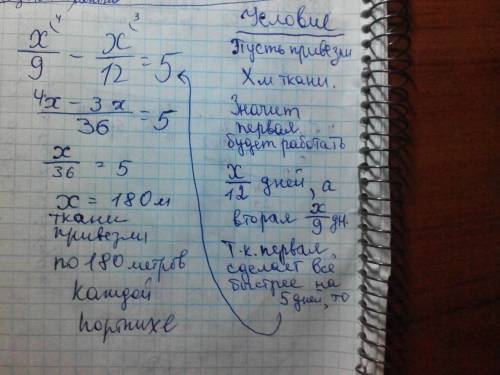 x/9 (4 − x/12 (3 = 5
4x − 3x / 36 = 5
x/36 = 5
x = 180м
ткани
привезли
по 180 метров
каждой
портнихе
Условие
Пусть привезли
Xм ткани.
Значит
первая
будет работать
x/12 дней, а
вторая x/9 дн.
Т.к. первая
сделает всё
быстрее на
5 дней, то